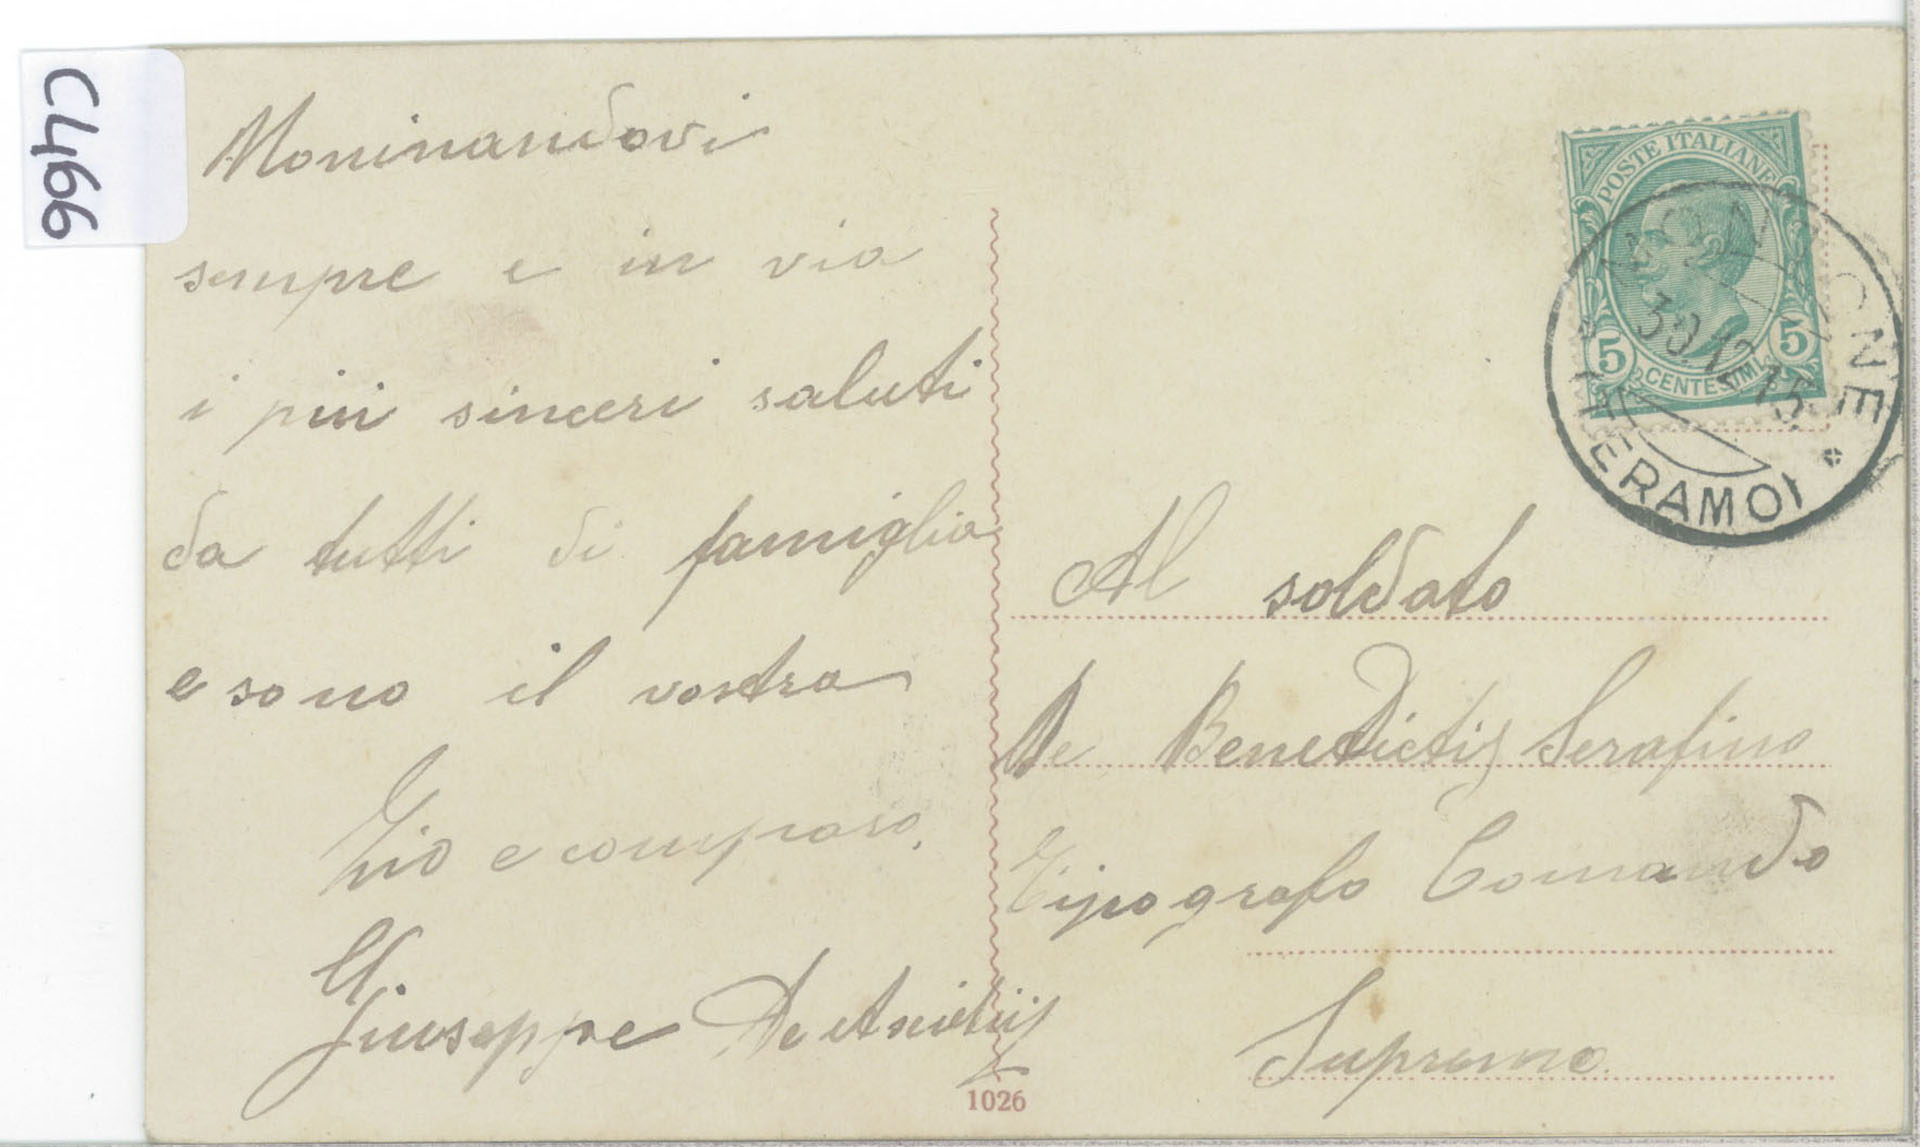 C466
Moninandovi
sempre e in via
i più sinceri saluti
da tutti di famiglia
e sono il vostro
Zio e compare,
Giuseppe De
POSTE ITALIANE
5 CENTESIMI 5
30.12.15
TERAMO
Al soldato
De Benedictis Serafino
Tipografo Comando
Supremo.
1026